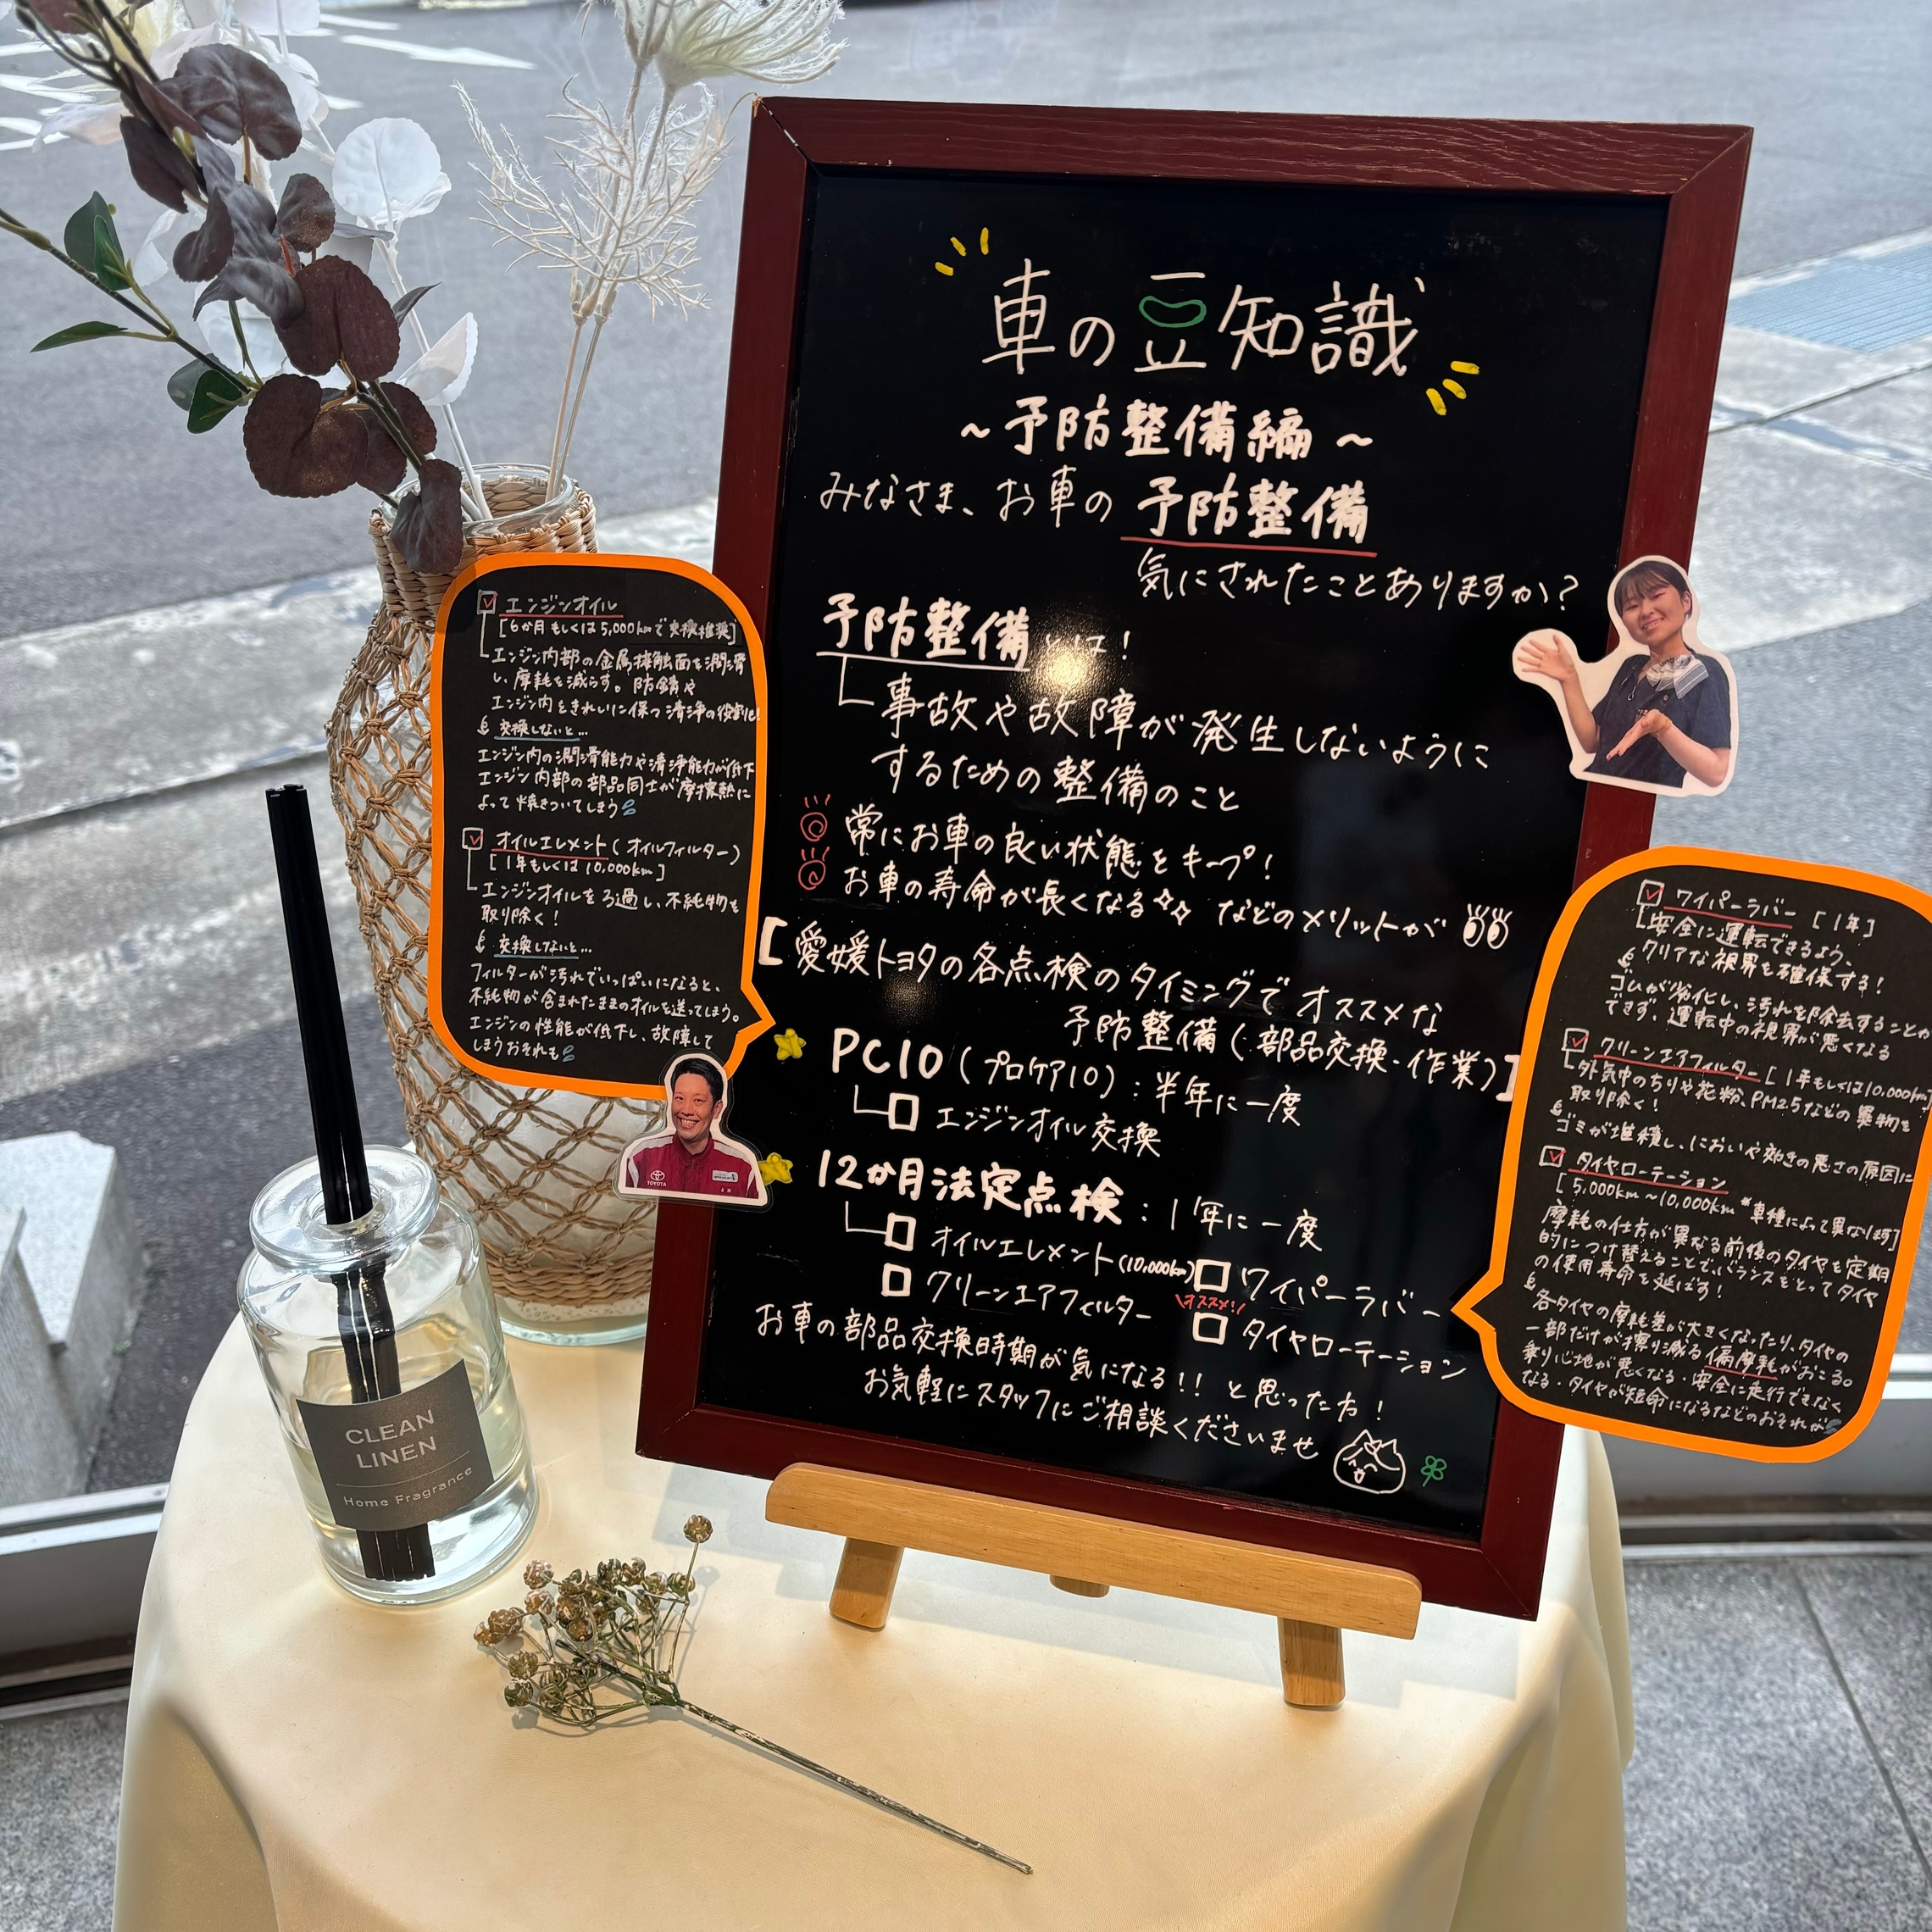 車の豆知識
~予防整備編~
みなさま、お車の予防整備
気にされたことありますか?
予防整備とは!
事故や故障が発生しないように
するための整備のこと
常にお車の良い状態をキープ!
お車の寿命が長くなる などのメリットが
[愛媛トヨタの各点検のタイミングでオススメな
予防整備(部品交換・作業)]
PC10(プロケア10):半年に一度
エンジンオイル交換
12か月法定点検:1年に一度
オイルエレメント(10,000km)
ワイパーラバー
クリーンエアフィルター
オススメ!
タイヤローテーション
お車の部品交換時期が気になる!!と思ったら!
お気軽にスタッフにご相談くださいませ
エンジンオイル
[6か月もしくは5,000kmで交換推奨]
エンジン内部の金属接触面を潤滑
し、摩耗を減らす。防錆や
エンジン内をきれいに保つ清浄の役割も!
交換しないと...
エンジン内の潤滑能力や清浄能力が低下
エンジン内部の部品同士が摩擦熱に
よって焼きついてしまう
オイルエレメント(オイルフィルター)
[1年もしくは10,000km]
エンジンオイルをろ過し、不純物を
取り除く!
交換しないと...
フィルターが汚れでいっぱいになると、
不純物が含まれたままのオイルを送ってしまう。
エンジンの性能が低下し、故障して
しまうおそれも
TOYOTA
ワイパーラバー[1年]
安全に運転できるよう、
クリアな視界を確保する!
ゴムが劣化し、汚れを除去することが
できず、運転中の視界が悪くなる
クリーンエアフィルター[1年もしくは10,000km]
外気中のちりや花粉、PM2.5などの異物を
取り除く!
ゴミが堆積し、においや効きの悪さの原因に
タイヤローテーション
[5,000km~10,000km*車種によって異なります]
摩耗の仕方が異なる前後のタイヤを定期
的につけ替えることでバランスをとってタイヤ
の使用寿命を延ばす!
各タイヤの摩耗差が大きくなったり、タイヤの
一部だけが擦り減る偏摩耗がおこる。
乗り心地が悪くなる・安全に走行できなく
なる・タイヤが短命になるなどのおそれが
CLEAN
LINEN
Home Fragrance